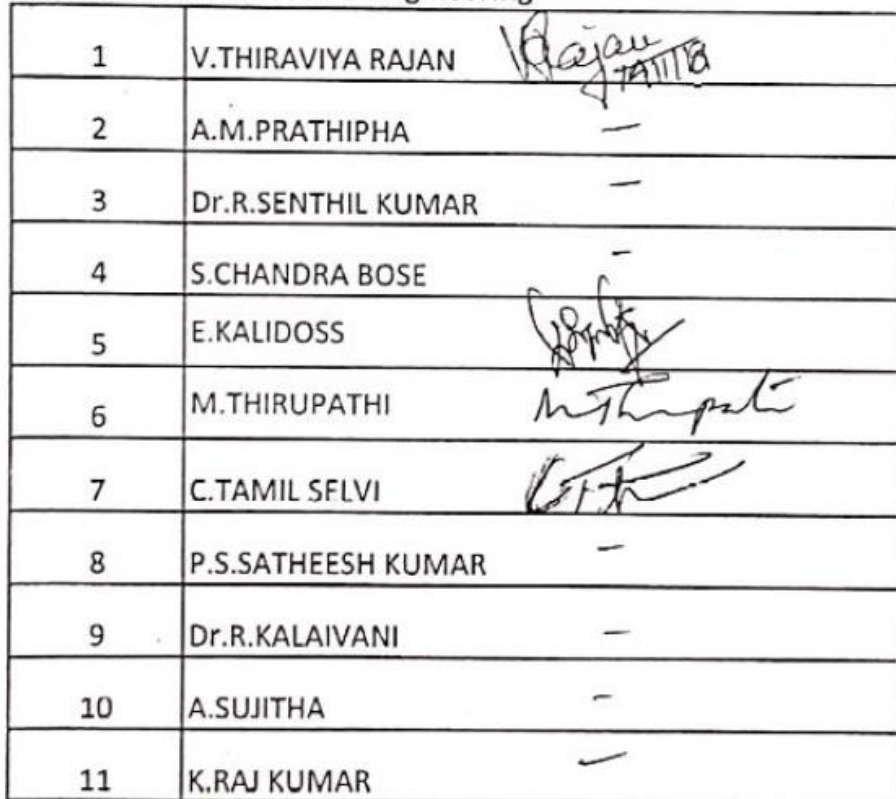 1 V.THIRAVIYA RAJAN VRajan
2 A.M.PRATHIPHA –
3 Dr.R.SENTHIL KUMAR –
4 S.CHANDRA BOSE -
5 E.KALIDOSS
6 M.THIRUPATHI M.Thirupathi
7 C.TAMIL SELVI
8 P.S.SATHEESH KUMAR –
9 Dr.R.KALAIVANI –
10 A.SUJITHA -
11 K.RAJ KUMAR –